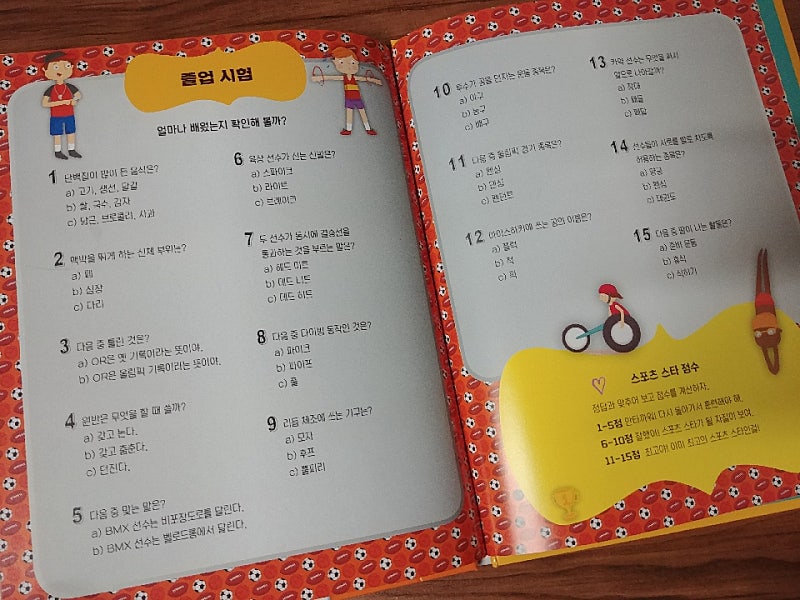 졸업 시험
얼마나 배웠는지 확인해 볼까?
1 단백질이 많이 든 음식은?
a) 고기, 생선, 달걀
b) 쌀, 국수, 감자
c) 당근, 브로콜리, 사과
2 맥박을 뛰게 하는 신체 부위는?
a) 폐
b) 심장
c) 다리
3 다음 중 틀린 것은?
a) OR은 옛 기록이라는 뜻이야.
b) OR은 올림픽 기록이라는 뜻이야.
4 원반은 무엇을 할 때 쓸까?
a) 갖고 논다.
b) 갖고 춤춘다.
c) 던진다.
5 다음 중 맞는 말은?
a) BMX 선수는 비포장도로를 달린다.
b) BMX 선수는 벨로드롬에서 달린다.
6 육상 선수가 신는 신발은?
a) 스파이크
b) 라이트
c) 브레이크
7 두 선수가 동시에 결승선을
통과하는 것을 부르는 말은?
a) 헤드 미트
b) 데드 니트
c) 데드 히트
8 다음 중 다이빙 동작인 것은?
a) 파이크
b) 파이프
c) 풀
9 리듬 체조에 쓰는 기구는?
a) 모자
b) 후프
c) 뿔피리
10 투수가 공을 던지는 운동 종목은?
a) 야구
b) 농구
c) 배구
11 다음 중 올림픽 경기 종목은?
a) 펜싱
b) 댄싱
c) 펜던트
12 아이스하키에 쓰는 공의 이름은?
a) 블럭
b) 척
c) 퍽
13 카약 선수는 무엇을 써서
앞으로 나아갈까?
a) 장대
b) 패들
c) 페달
14 선수들이 서로를 발로 차도록
허용하는 종목은?
a) 양궁
b) 펜싱
c) 태권도
15 다음 중 땀이 나는 활동은?
a) 준비 운동
b) 휴식
c) 식히기
스포츠 스타 점수
정답과 맞추어 보고 점수를 계산하자.
1-5점 안타까워! 다시 돌아가서 훈련해야 해.
6-10점 잘했어! 스포츠 스타가 될 자질이 보여.
11-15점 최고야! 이미 최고의 스포츠 스타인걸!